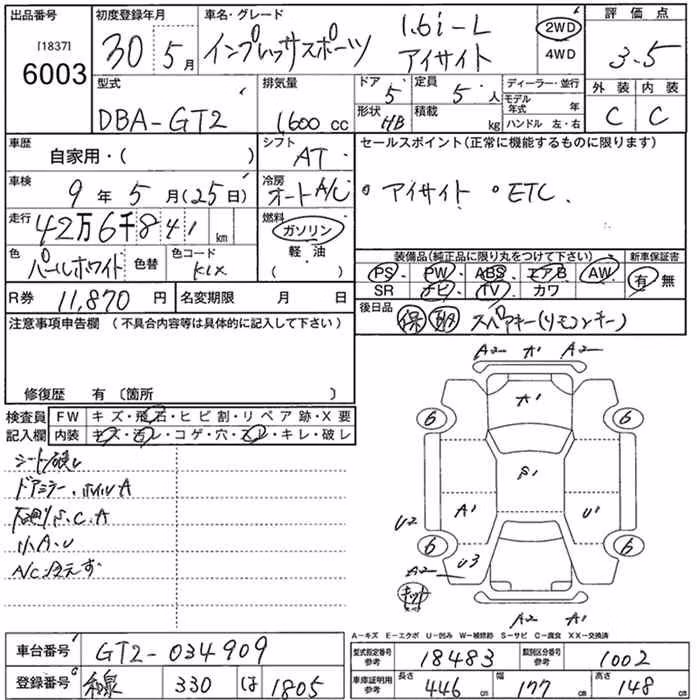 出品番号 [1837] 6003
初度登録年月 30 5月
車名・グレード インプレッサスポーツ 1.6i-L アイサイト
2WD 4WD
評価点 3.5
外装 内装
C C
型式 DBA-GT2
排気量 1600 cc
ドア 5
定員 5人
形状 HB
積載 kg
ディーラー・並行
モデル年式 年
ハンドル 左・右
車歴 自家用・( )
シフト AT
セールスポイント(正常に機能するものに限ります)
。アイサイト 。ETC.
車検 9年 5月(25日)
冷房 オートA/C
走行 42万6千841 km
燃料 ガソリン・軽・油 ( )
色 パールホワイト 色替
色コード K1X
装備品(純正品に限り丸をつけて下さい) 新車保証書
PS・PW・ABS・エアB AW
SR ナビ・TV・カワ
有 無
R券 11,870 円
名変期限 月 日
後日品 保 取 スペアキー(リモコンキー)
注意事項申告欄 (不具合内容等は具体的に記入して下さい)
修復歴 有 〔箇所 〕
検査員記入欄
FW キズ・飛石・ヒビ割・リペア跡・X要
内装 キズ・汚レ・コゲ・穴・スレ・キレ・破レ
ドアミラー、ホイルA
小A・U
A/C冷えず
A2 A1 A2
A1
6 6
S1
A1 U1
U2
6 6
A2 U3
キット
A2 A1
A-キズ E-エクボ U-凹み W-補修跡 S-サビ C-腐食 XX-交換済
車台番号 GT2-034909
型式指定番号 参考 18483
類別区分番号 参考 1002
登録番号 和泉 330 は 1805
車庫証明用 参考 長さ 446 cm 幅 177 cm 高さ 148 cm